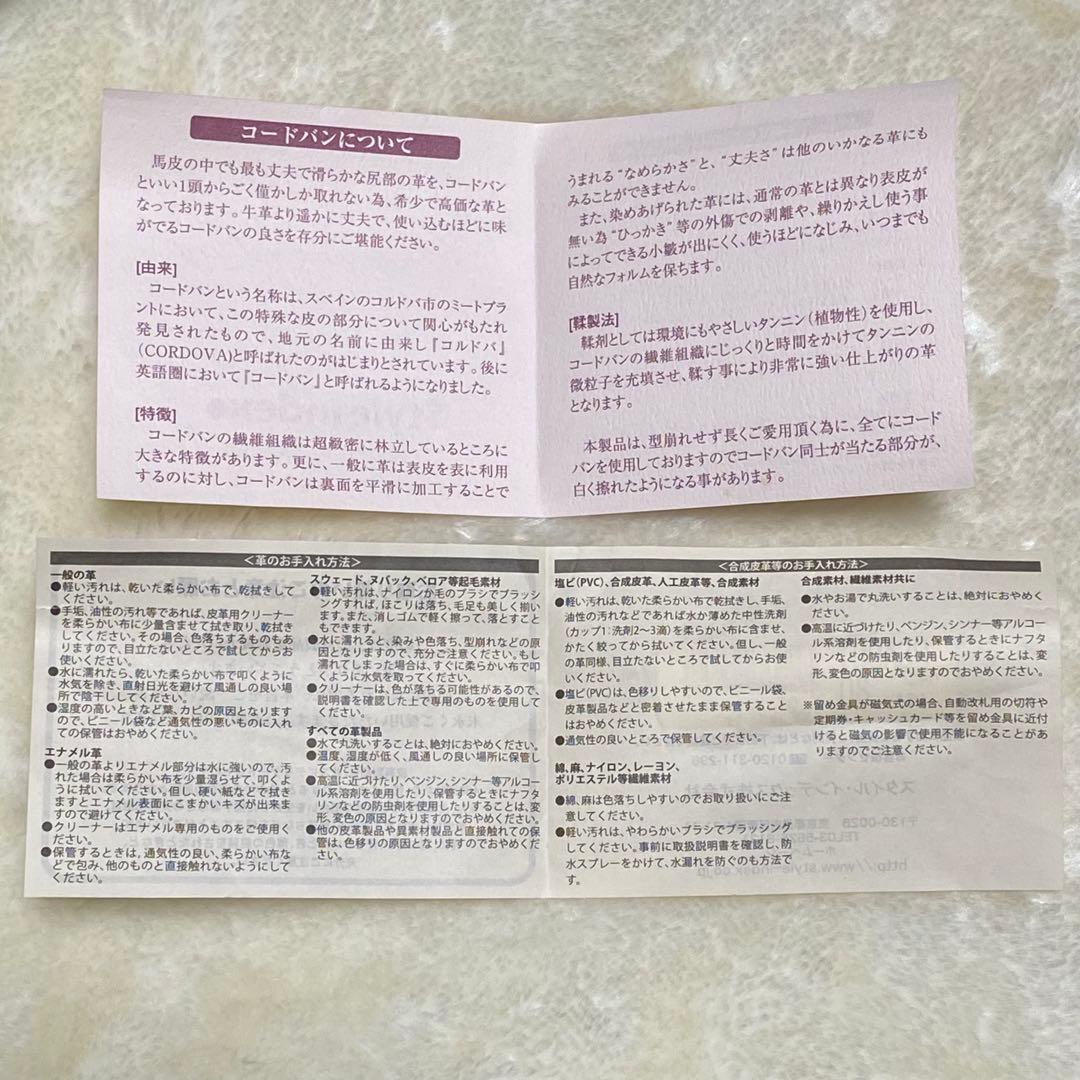 コードバンについて
馬皮の中でも最も丈夫で滑らかな尻部の革を、コードバン
といい1頭からごく僅かしか取れない為、希少で高価な革と
なっております。牛革より遥かに丈夫で、使い込むほどに味
がでるコードバンの良さを存分にご堪能ください。
[由来]
コードバンという名称は、スペインのコルドバ市のミートプラ
ントにおいて、この特殊な皮の部分について関心がもたれ
発見されたもので、地元の名前に由来し『コルドバ』
(CORDOVA)と呼ばれたのがはじまりとされています。後に
英語圏において『コードバン』と呼ばれるようになりました。
[特徴]
コードバンの繊維組織は超緻密に林立しているところに
大きな特徴があります。更に、一般に革は表皮を表に利用
するのに対し、コードバンは裏面を平滑に加工することで
うまれる“なめらかさ”と、“丈夫さ”は他のいかなる革にも
みることができません。
また、染めあげられた革には、通常の革とは異なり表皮が
無い為“ひっかき”等の外傷での剥離や、繰りかえし使う事
によってできる小皺が出にくく、使うほどになじみ、いつまでも
自然なフォルムを保ちます。
[鞣製法]
鞣剤としては環境にもやさしいタンニン(植物性)を使用し、
コードバンの繊維組織にじっくりと時間をかけてタンニンの
微粒子を充填させ、鞣す事により非常に強い仕上がりの革
となります。
本製品は、型崩れせず長くご愛用頂く為に、全てにコード
バンを使用しておりますのでコードバン同士が当たる部分が、
白く擦れたようになる事があります。
<革のお手入れ方法>
一般の革
●軽い汚れは、乾いた柔らかい布で、乾拭きして
ください。
●手垢、油性の汚れ等であれば、皮革用クリーナー
を柔らかい布に少量含ませて拭き取り、乾拭き
してください。その場合、色落ちするものもあ
りますので、目立たないところで試してからお
使いください。
●水に濡れたら、乾いた柔らかい布で叩くように
水気を除き、直射日光を避けて風通しの良い場
所で陰干ししてください。
●湿度の高いときなど葉、カビの原因となります
ので、ビニール袋など通気性の悪いものに入れ
ての保管はおやめください。
エナメル革
●一般の革よりエナメル部分は水に強いので、汚
れた場合は柔らかい布を少量湿らせて、叩くよう
に拭いてください。但し、硬い紙などで拭き
ますとエナメル表面にこまかいキズが出来ま
すので避けてください。
●クリーナーはエナメル専用のものをご使用くだ
さい。
●保管するときは、通気性の良い、柔らかい布な
どで包み、他のものと直接触れないようにして
ください。
スウェード、ヌバック、ベロア等起毛素材
●軽い汚れは、ナイロンか毛のブラシでブラッシ
ングすれば、ほこりは落ち、毛足も美しく揃い
ます。また、消しゴムで軽く擦って、落とすこと
もできます。
●水に濡れると、染みや色落ち、型崩れなどの原
因となりますので、充分ご注意ください。もし
濡れてしまった場合は、すぐに柔らかい布で叩
くように水気を取ってください。
●クリーナーは、色が落ちる可能性があるので、
説明書を確認した上で専用のものを使用して
ください。
すべての革製品
●水で丸洗いすることは、絶対におやめください。
●温度、湿度が低く、風通しの良い場所に保管し
てください。
●高温に近づけたり、ベンジン、シンナー等アルコー
ル系溶剤を使用したり、保管するときにナフタ
リンなどの防虫剤を使用したりすることは、変
形、変色の原因となりますのでおやめください。
●他の皮革製品や異素材製品と直接触れての保
管は、色移りの原因となりますのでおやめくだ
さい。
<合成皮革等のお手入れ方法>
塩ビ(PVC)、合成皮革、人工皮革等、合成素材
●軽い汚れは、乾いた柔らかい布で乾拭きし、手垢、
油性の汚れなどであれば水か薄めた中性洗剤
(カップ1:洗剤2〜3滴)を柔らかい布に含ませ、
かたく絞ってから拭いてください。但し、一般
の革同様、目立たないところで試してからお使
いください。
●塩ビ(PVC)は、色移りしやすいので、ビニール袋、
皮革製品などと密着させたまま保管すること
はおやめください。
●通気性の良いところで保管してください。
綿、麻、ナイロン、レーヨン、
ポリエステル等繊維素材
●綿、麻は色落ちしやすいのでお取り扱いにご注
意してください。
●軽い汚れは、やわらかいブラシでブラッシング
してください。事前に取扱説明書を確認し、防
水スプレーをかけて、水漏れを防ぐのも方法で
す。
合成素材、繊維素材共に
●水やお湯で丸洗いすることは、絶対におやめく
ださい。
●高温に近づけたり、ベンジン、シンナー等アルコー
ル系溶剤を使用したり、保管するときにナフタ
リンなどの防虫剤を使用したりすることは、変
形、変色の原因となりますのでおやめください。
※留め金具が磁気式の場合、自動改札用の切符や
定期券・キャッシュカード等を留め金具に近付
けると磁気の影響で使用不能になることがあ
りますのでご注意ください。